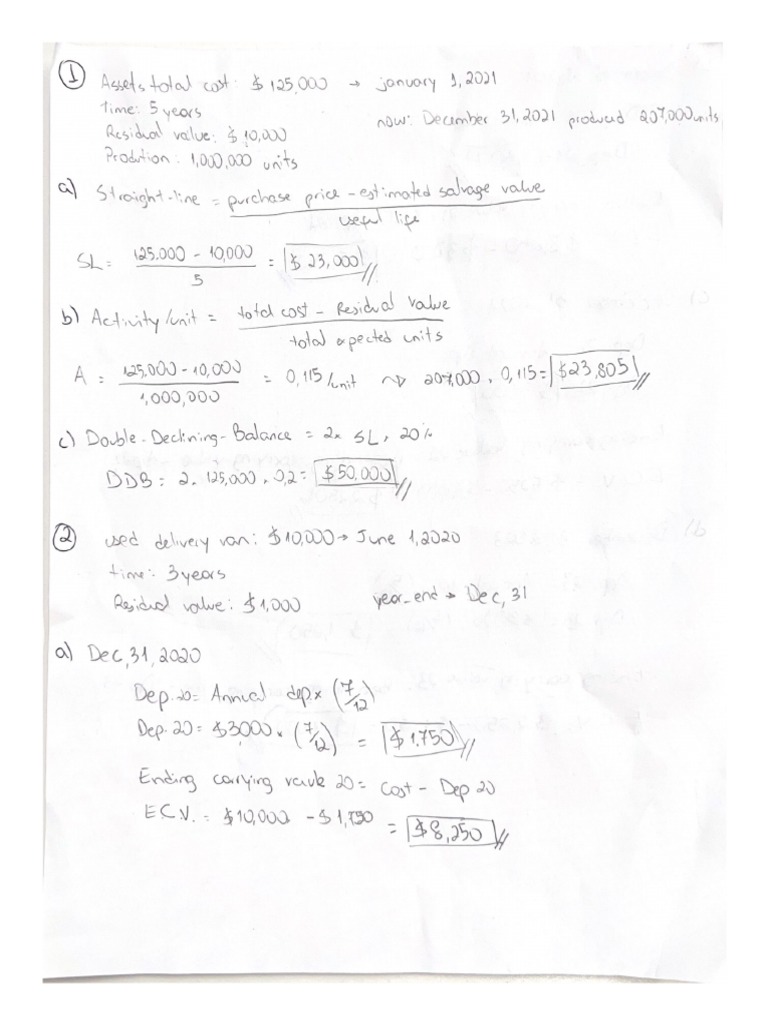 ① Assets total cost: $ 125,000 → january 1, 2021
Time: 5 years
now: December 31, 2021 produced 207,000 units
Residual value: $ 10,000
Prodution: 1,000,000 units
a) Straight-line = purchase price - estimated salvage value
useful life
SL = 125.000 - 10,000 = $ 23,000
5
b) Activity /unit = total cost - Residual value
total expected units
A = 125,000 - 10,000 = 0,115/unit ~> 207,000 . 0,115 = $23,805
1,000,000
c) Double-Declining-Balance = 2x SL . 20%
DDB = 2 . 125,000 . 0,2 = $50,000
② used delivery van: $10,000 → June 1, 2020
time: 3 years
Residual value: $1,000 year-end → Dec, 31
a) Dec, 31, 2020
Dep. 20 = Annual dep x (7/12)
Dep. 20 = $3000 x (7/12) = $1.750
Ending carrying value 20 = Cost - Dep 20
E.C.V. = $10,000 - $1,750 = $8,250